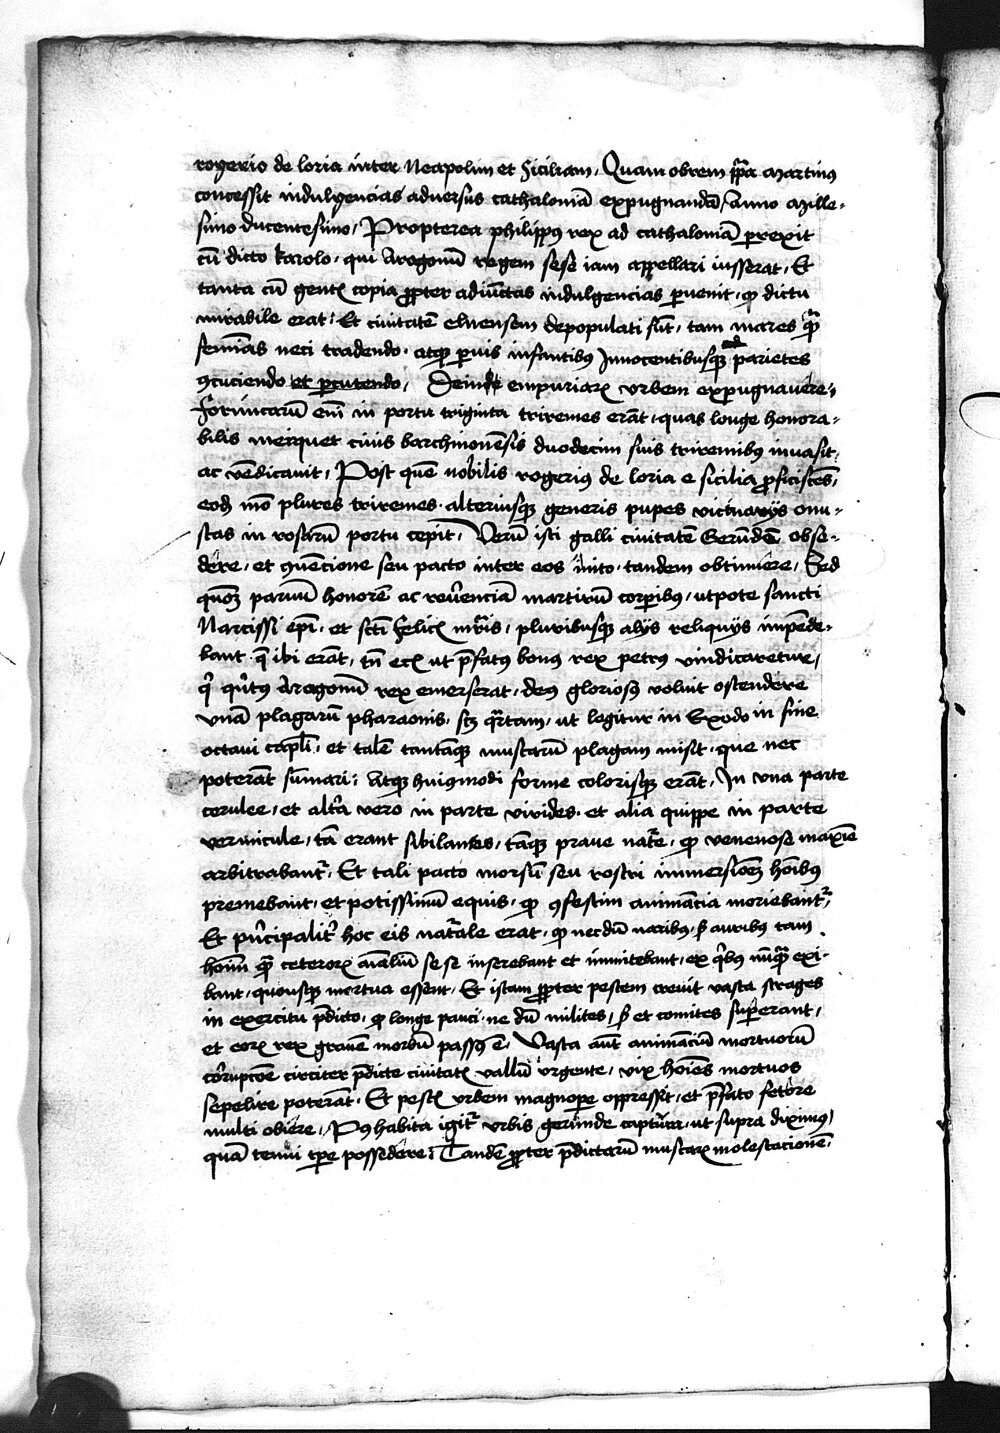 rogerio de loria inter Neapolim et Siciliam, Quam obrem ppa Martinus
concessit indulgencias adversus cathaloniā expugnandā, Anno Mille-
simo ducentesimo, Propterea philippus rex ad cathaloniā prexit
cū dicto karolo, qui Aragonum regem sese iam appellari iusserat, Et
tanta cū gentis copia propter adiūctas indulgencias pervenit, quod dictu
mirabile erat, Et civitatē elnensem depopulati sūt, tam mares quam
feminas neci tradendo, atque parvis infantibus Innocentibusque ad parietes
concuciendo et percutendo, Deinde empuriarum urbem expugnavere,
forincarum enī in portu triginta triremes erāt, quas longe honora-
bilis merquet civis barchinonēsis duodecim suis triremibus invasit,
ac vēdicavit, Post quē nobilis rogerius de loria e sicilia proficiscēs,
eodem modo plures triremes, alteriusque generis pupes victuariis onu-
stas in rosarū portu cepit, Verū isti galli civitatē Gerūdē obse-
dēre, et convēcione seu pacto inter eos inito, tandem obtinuēre, Sed
quoniam parvum honorē ac reverenciā martirum corporibus, utpote sancti
Narcissi epī, et scti felicis mrīs, pluribusque aliis reliquiis impēde-
bant que ibi erāt, tū eciam ut prefatus bonus rex petrus vindicaretur,
qui quartus Aragonum rex emerserat, deus gloriosus voluit ostendere
unā plagarū pharaonis, scilicet quartam, ut legitur in Exodo in fine
octavi capli, et talē tantāque muscarū plagam misit, que nec
poterāt sūmari, Atque huiusmodi forme colorisque erāt, In una parte
cerulee, et altera vero in parte virides, et alia quippe in parte
vermicule, tā erant sibilantes, tāque prave nate, quod venenose maxime
arbitrabantur, Et tali pacto morsū seu rostri immersionem hoibus
premebant, et potissimū equis, quod confestim animācia moriebantur,
Et principaliter hoc eis naturale erat, quod necdū naribus, sed auribus tam
hominū quam ceterorum aīaliū sese inserebant et inmitebant, ex quibus nūquam exi-
bant, quousque mortua essent, Et istam propter pestem crevit vasta strages
in exercitu predicto, quod longe pauci ne dū milites, sed et comites superant,
et eorum rex gravē morbū passus ē, Vasta autem animāciū mortuorū
corrupcōe circiter predicte civitatis vallū urgente, vix hoīes mortuos
sepelire poterāt, Et pestis urbem magnope oppressit, et prefato fetore
multi obiēre, Post habita igitur urbis gerunde captura, ut supra diximus,
quā tenui tpe possedēre, Tandē propter predictarū muscarum molestacionē,